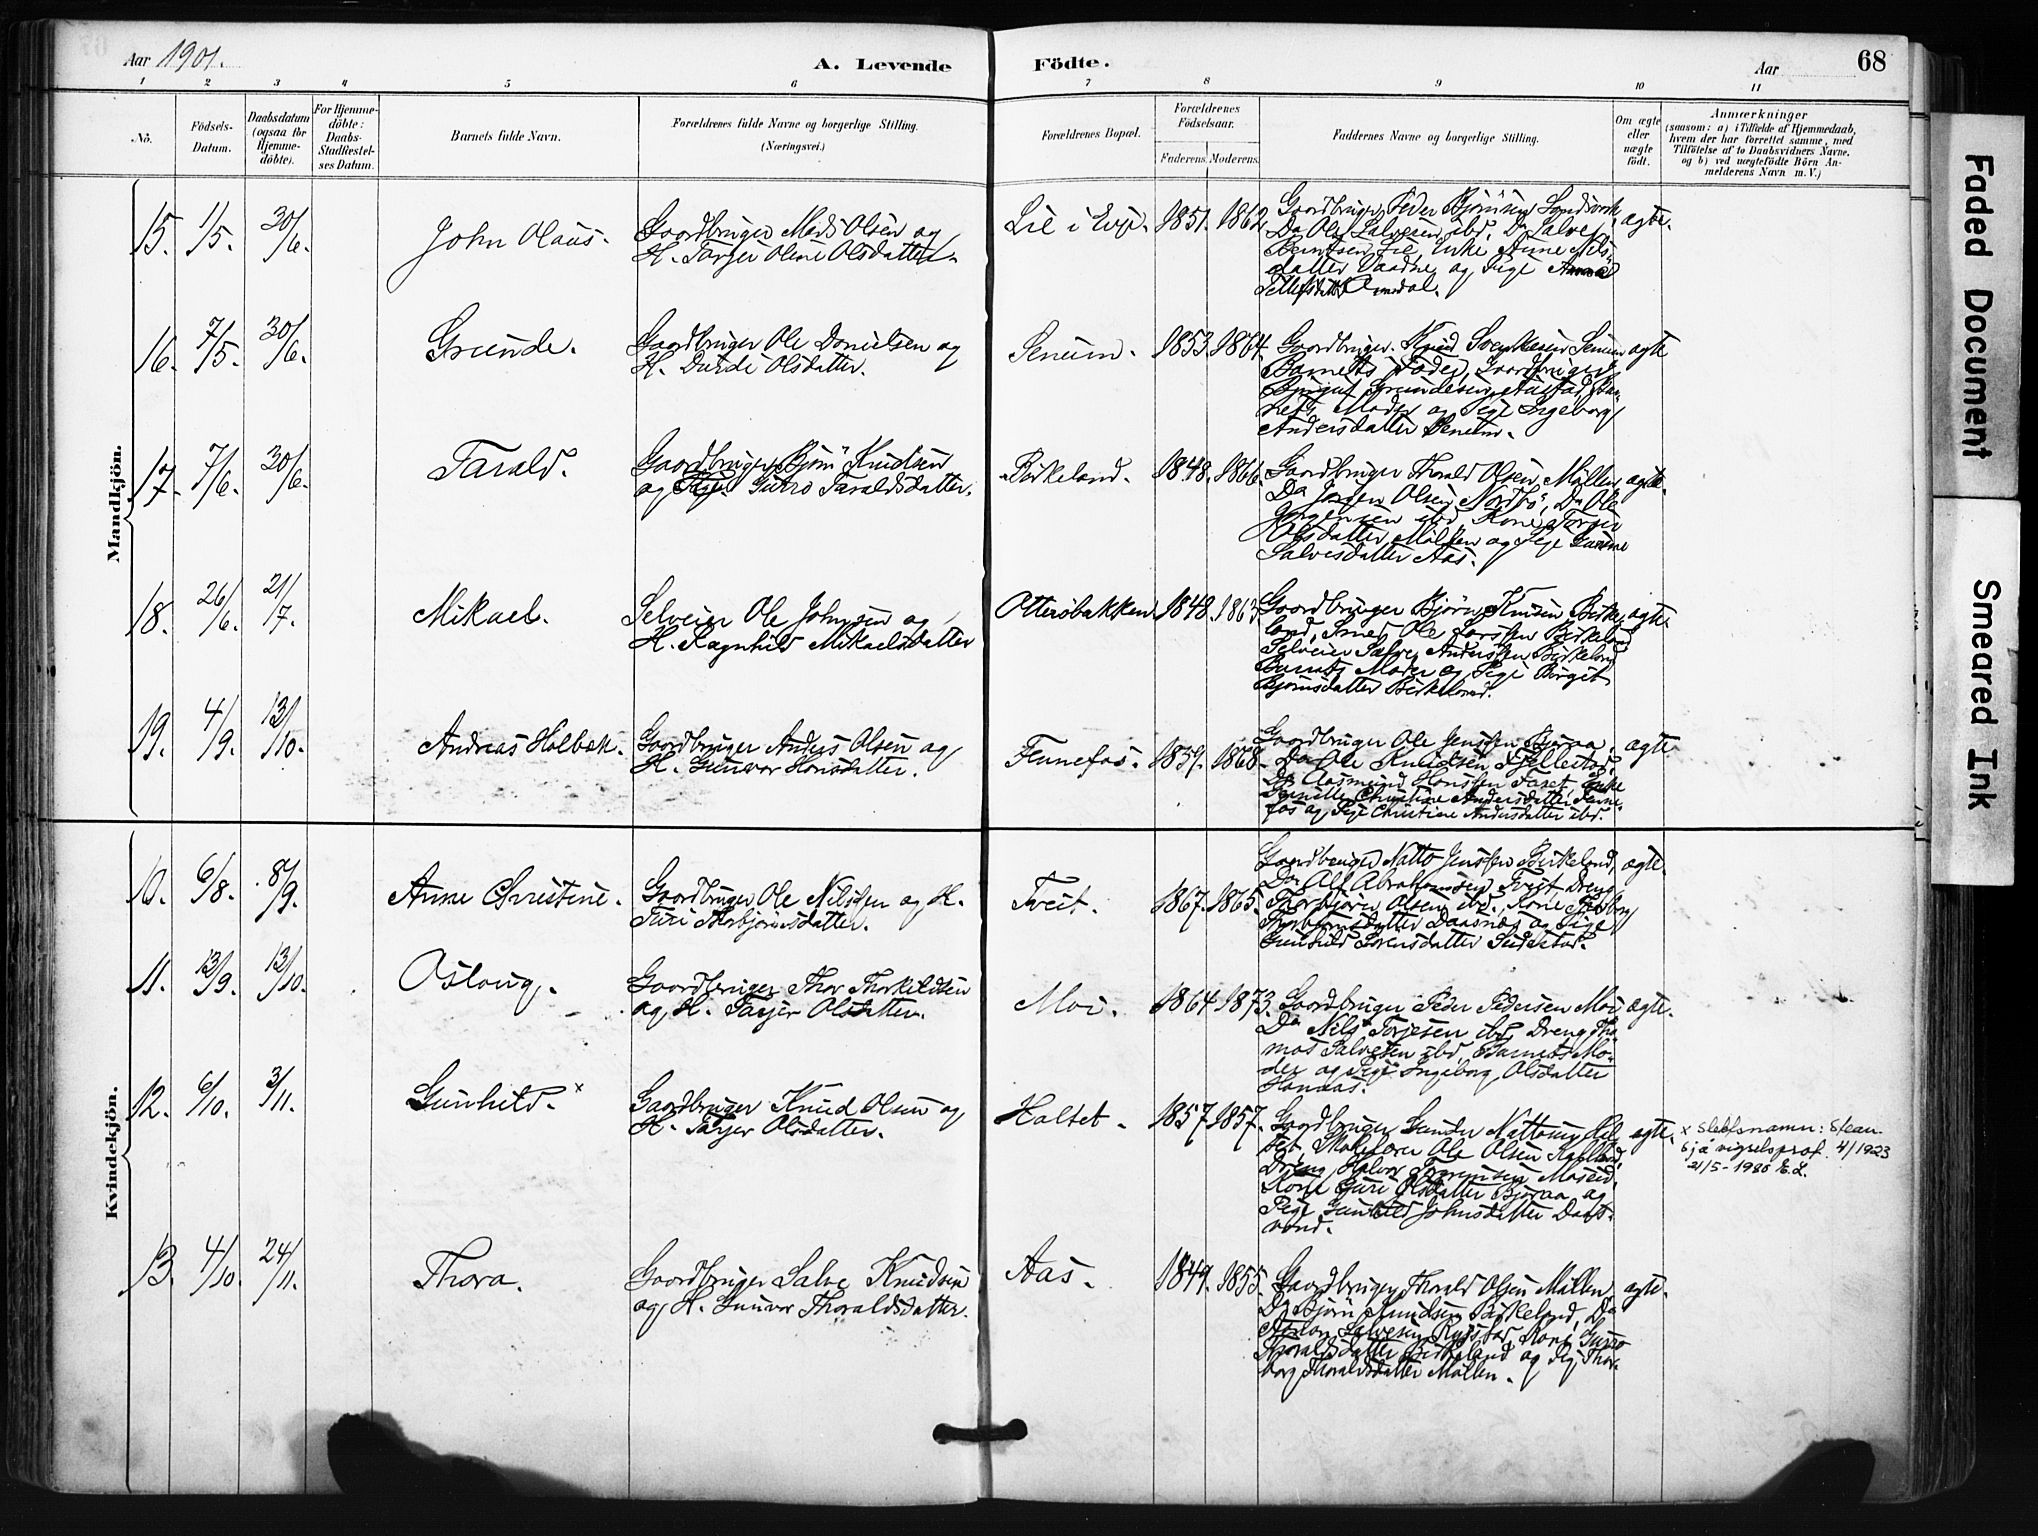 Aar 1901.
A. Levende Födte.
Aar
68
1 2 3 4 5 6 7 8 9 10 11
No.
Födsels-Datum.
Daabsdatum (ogsaa for Hjemme-döbte).
For Hjemme-döbte: Daabs-Stadfæstel-ses Datum.
Barnets fulde Navn.
Forældrenes fulde Navne og borgerlige Stilling. (Næringsvei.)
Forældrenes Bopæl.
Forældrenes Födselsaar.
Faderens. Moderens.
Faddernes Navne og borgerlige Stilling.
Om ægte eller uægte födt.
Anmærkninger
(saasom: a) i Tilfælde af Hjemmedaab, hvem der har forrettet samme, med Tilföielse af to Daabsvidners Navne, og b) ved uægtefödte Börn An-melderens Navn m. V.)
Mandkjön.
15. 1/5. 30/6. John Olaus. Gaardbruger Mads Olsen og
H. Tarjer Oline Olsdatter.
Lie i Evje. 1851. 1862
Gaardbruger Peder Bjørnsen Landsverk
Do Ole Salvesen ibd, Do Salve
Berntsen Lie, Enke Anne Nils-
datter Vaadne og Pige
Tellefsdatter Omdal.
ægte.
16. 7/5. 30/6. Grunde. Gaardbruger Ole Danielsen og
H. Durdi Olsdatter.
Senum. 1853. 1864.
Gaardbruger Knud Svenkesen Senum
Barnets Fader, Gaardbruger
Grundesen, Bar-
nets Moder og Pige Ingeborg
Andersdatter Senum.
ægte
17. 7/6. 30/6. Tarald. Gaardbruger Bjørn Knudsen
og Gunro Taraldsdatter.
Birkeland. 1848. 1866.
Gaardbruger Thorald Olsen Møllen
Do Jørgen Olsen Nordbö, Do Ole
Jørgensen ibd, Kone Torjer
Olsdatter Møllen og Pige Gunne
Salvesdatter Aas.
ægte.
18. 26/6. 21/7. Mikael. Selveier Ole Johnsen og
H. Ragnhild Mikaelsdatter
Otteröbakken. 1848. 1863
Gaardbruger Bjørn Knudsen Birke-
land, Smed Ole Larssen Birkeland,
Selveier Salve Anderssen Birkeland
Barnets Moder og Pige Børgit
Bjørnsdatter Birkeland.
ægte.
19. 4/9. 13/10. Andreas Holbæk. Gaardbruger Anders Olsen og
H. Gunvor Hansdatter.
Fennefos. 1859. 1868.
Gaardbruger Ole Jenssen Bjøraa,
Do Ole Knudsen Fjellestad,
Do Aasmund Hanssen Faret, Enke
Pernille Christine Andersdatter Fenne-
fos og Pige Christine Andersdatter ibd.
ægte.
Kvindekjön.
10. 6/8. 8/9. Anne Christine. Gaardbruger Ole Nilssen og H.
Turi Thorbjørnsdatter.
Tveit. 1867. 1865.
Gaardbruger Natto Jenssen Birkeland,
Do Alf Abrahamsen Tveit, Dreng
Thorbjørn Olsen ibd., Kone
Thorbjørnsdatter Daasnæs og Pige
Gunhild Sørensdatter
ægte.
11. 13/9. 13/10. Osloug. Gaardbruger Thor Thorkildsen
og H. Tarjer Olsdatter.
Moi. 1864 1873.
Gaardbruger Peder Pedersen Moi
Do Nils Torjesen ibd, Dreng Tho-
mas Salvesen ibd, Barnets Mo-
der og Pige Ingeborg Olsdatter
Hannaas.
ægte.
12. 6/10. 3/11. Gunhild. x Gaardbruger Knud Olsen og
H. Tarjer Olsdatter.
Haltet. 1857. 1857.
Gaardbruger Gunder Hal-
tet, Ole Olsen
Dreng Halvor Moseid,
Kone Guri Olsdatter Bjøraa og
Pige Gunhild Johnsdatter Daas-
vand.
ægte.
x Slektsnamn: Stean
Sjå vigselsprot. 4/1923
21/5-1980 E.L.
13. 4/10. 24/11. Thora. Gaardbruger Salve Knudsen
og H. Gunvor Thoraldsdatter.
Aas. 1849. 1855.
Gaardbruger Thorald Olsen Møllen,
Do Bjørn Knudsen Birkeland, Do
Salvesen Kone Gunro
Thoraldsdatter Birkeland og Pige Thor-
borg Thoraldsdatter Møllen.
ægte.
Faded Document
Smeared Ink